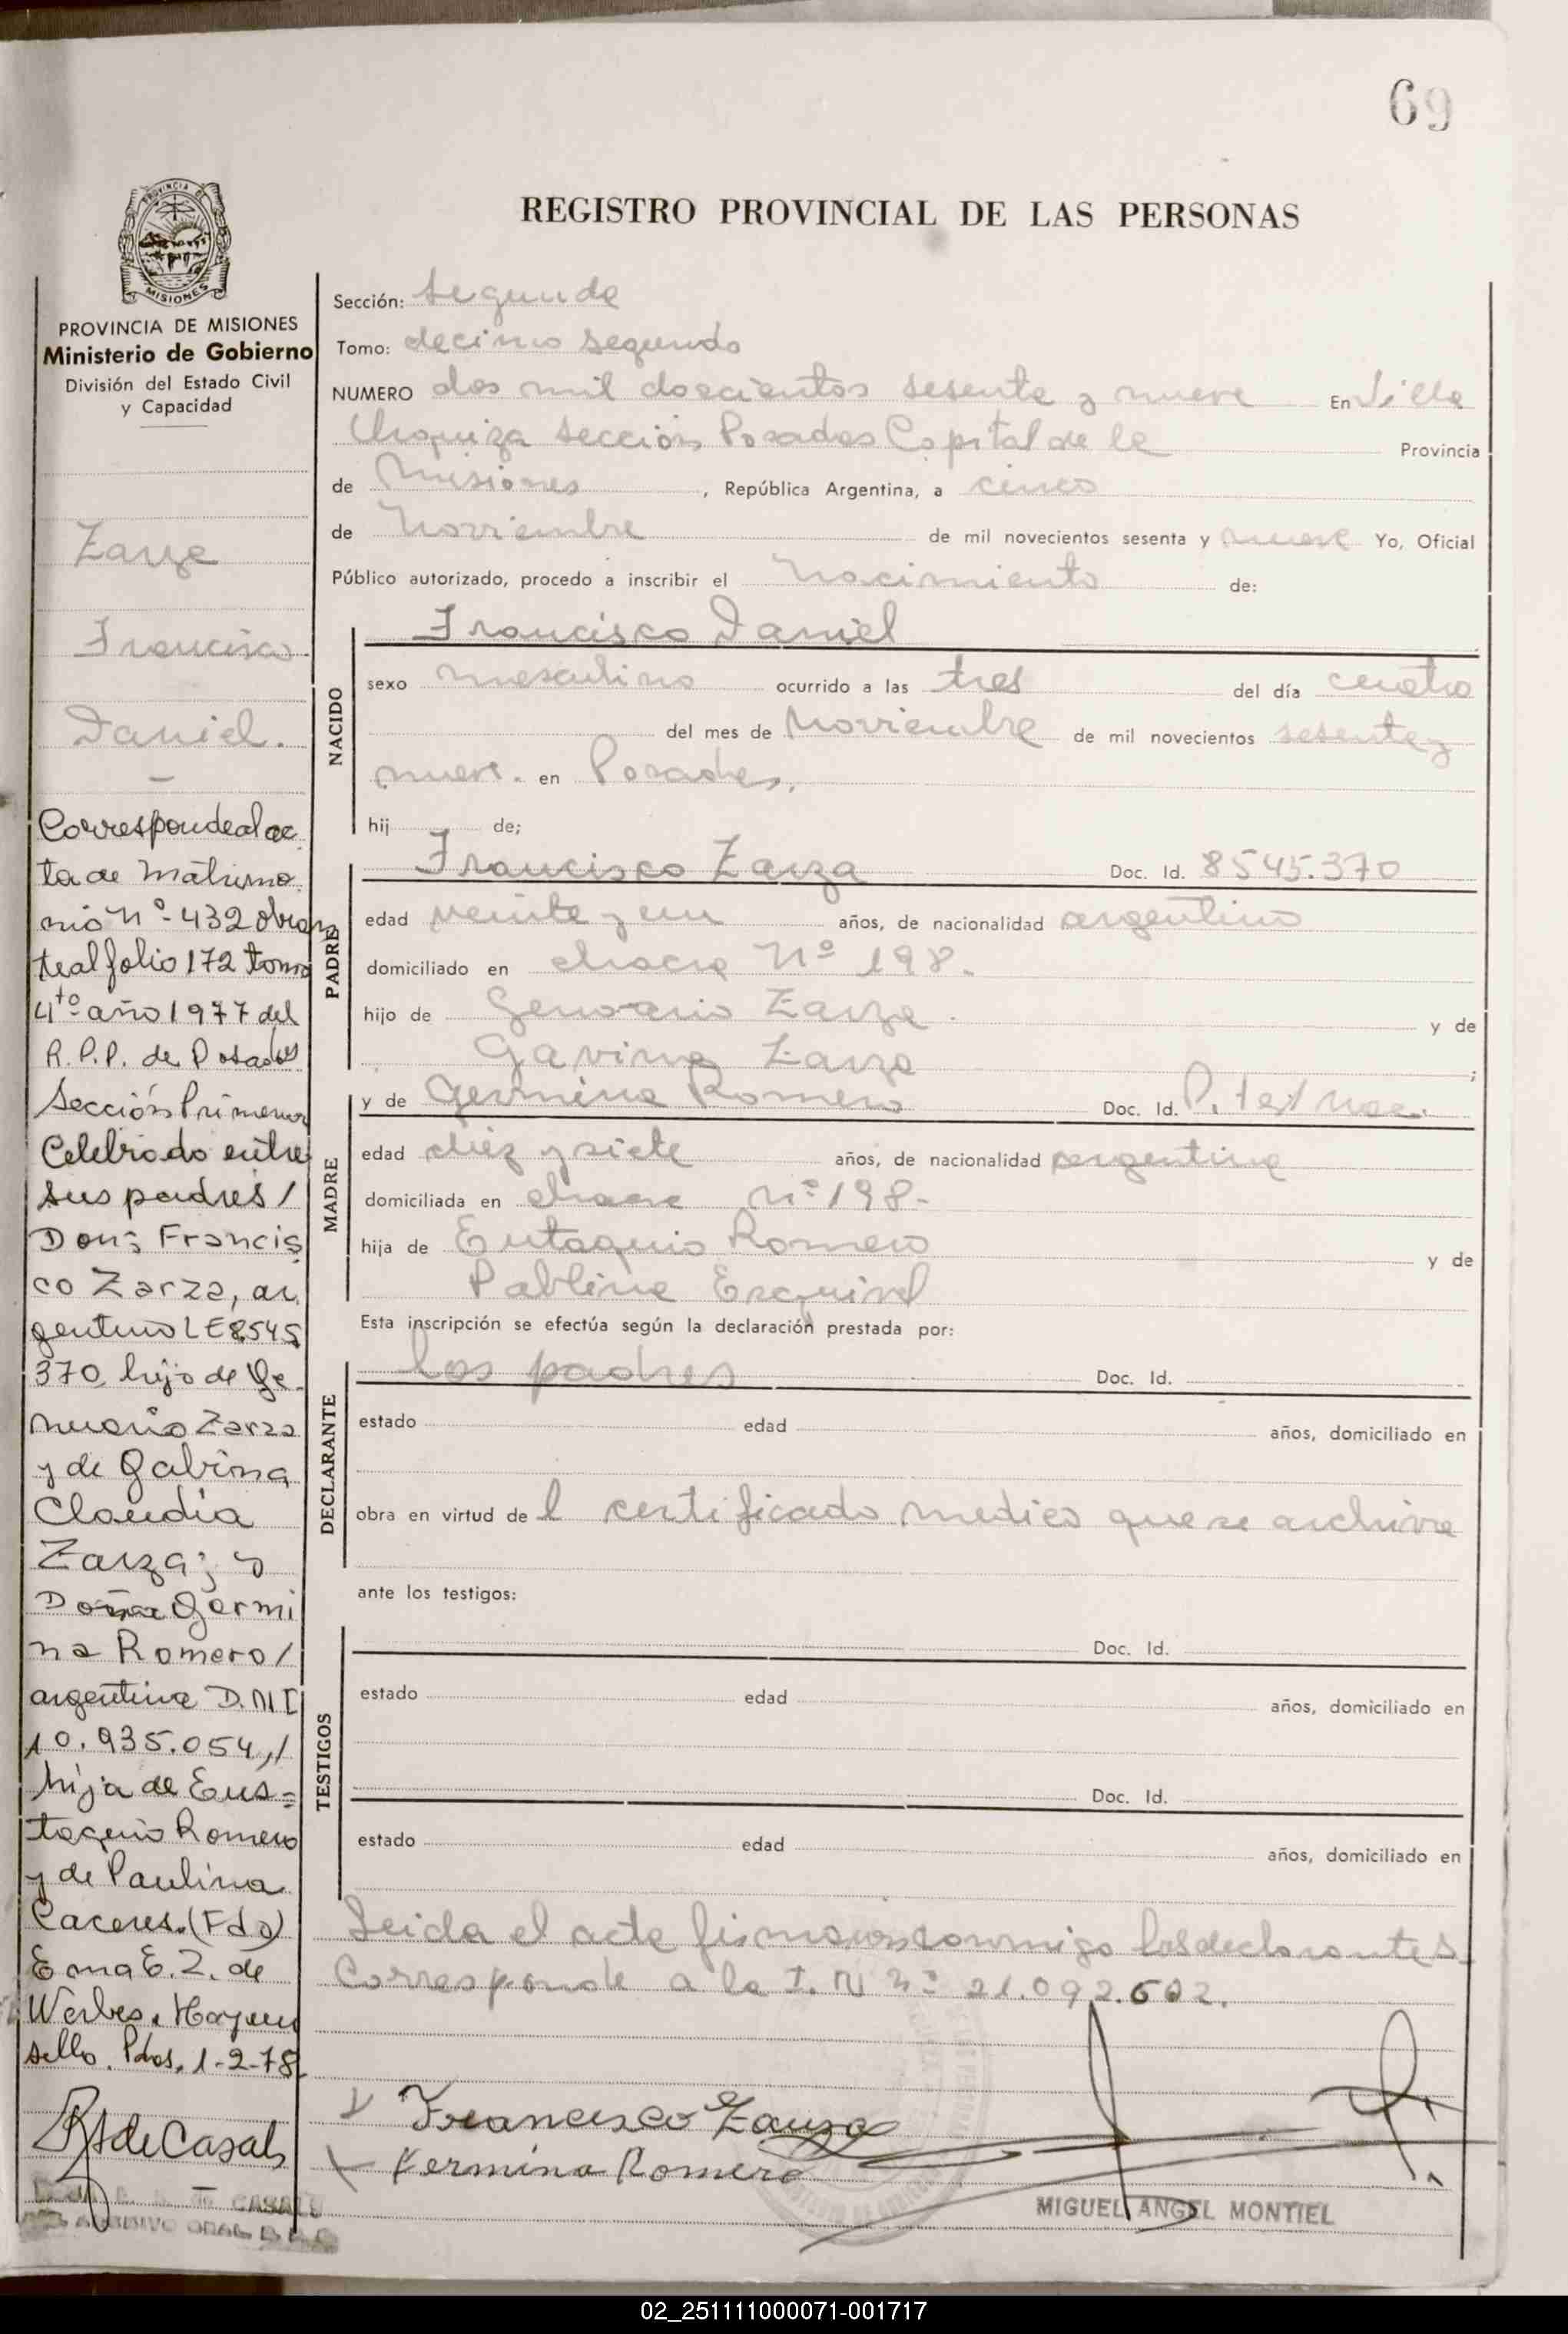 69
PROVINCIA DE MISIONES
REGISTRO PROVINCIAL DE LAS PERSONAS
PROVINCIA DE MISIONES
Ministerio de Gobierno
División del Estado Civil
y Capacidad
Zarza
Francisco
Daniel.
Corresponde al ac
ta de Matrimo
nio Nº 432 obran
te al folio 172 tomo
4to año 1977 del
R.P.P. de Posadas
Sección Primera
Celebrado entre
sus padres/
Don; Francis
co Zarza, ar
gentino L E 8545
370 hijo de Ge
nuario Zarza
y de Gabina
Claudia
Zarza; y
Doña Germi
na Romero/
argentina D.N.I
10.935.054,/
hija de Eus=
taquio Romero
y de Paulina
Caceres. (Fdo)
Ema E. Z. de
Werbes. Hay un
sello. Pdas, 1-2-78.
Sección: Segunda
Tomo: decimo segundo
NUMERO dos mil doscientos sesenta y nueve En Villa
Urquiza Sección Posadas Capital de la Provincia
de Misiones, República Argentina, a cinco
de Noviembre de mil novecientos sesenta y nueve Yo, Oficial
Público autorizado, procedo a inscribir el Nacimiento de:
NACIDO
Francisco Daniel
sexo masculino ocurrido a las tres del día cuatro
del mes de Noviembre de mil novecientos sesenta y
nueve. en Posadas,
hij de;
PADRE
Francisco Zarza Doc. Id. 8545.370
edad veinte y un años, de nacionalidad argentino
domiciliado en chacra Nº 198.
hijo de Genuario Zarza. y de
Gavina Zarza ;
MADRE
y de Germina Romero Doc. Id. P. test nac.
edad diez y siete años, de nacionalidad argentina
domiciliada en chacra Nº 198-
hija de Eutaquio Romero y de
Pablina Esquivel
Esta inscripción se efectúa según la declaración prestada por:
DECLARANTE
los padres Doc. Id.
estado edad años, domiciliado en
obra en virtud de l certificado medico que se archiva
ante los testigos:
TESTIGOS
Doc. Id.
estado edad años, domiciliado en
Doc. Id.
estado edad años, domiciliado en
Leida el acta firmaron conmigo los declarantes
Corresponde a la I. N Nº 21.092.602.
Francisco Zarza
Germina Romero
MIGUEL ANGEL MONTIEL
de Casals
DE CASALS
02_251111000071-001717